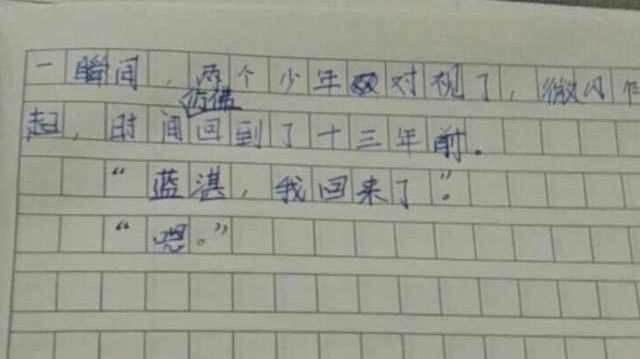 一瞬间，两个少年对视了，微风乍
起，时间仿佛回到了十三年前。
“蓝湛，我回来了”。
“嗯。”